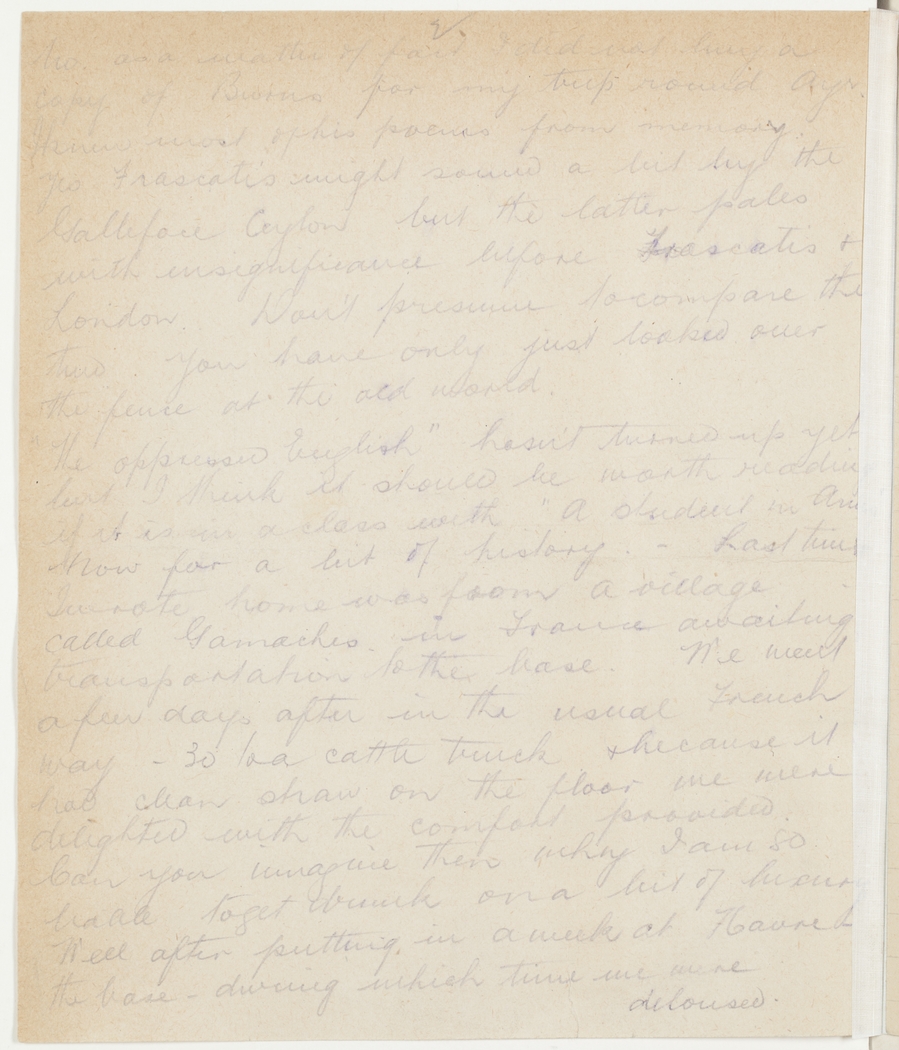 2.
No. as a matter of fact I did not buy a
copy of Burns for my trip round Ayr.
Know most of his poems from memory.
No Frascatis might sound a bit by the
Galleface Ceylon but the latter pales
with insignificance before Frascatis &
London. Don't presume to compare the
two. You have only just looked over
the fence at the old world.
"The oppressed English" hasn't turned up yet
but I think it should be worth readin
if it is in a class with "A student in Arm
Now for a bit of history. - Last time
I wrote home was from a village
called Gamaches in France awaiting
transportation to the base. We went
a few days after in the usual French
way - 30 to a cattle truck & because it
had clean straw on the floor we were
delighted with the comfort provided.
Can you imagine then why I am so
to get drunk on a bit of luxury
Well after putting in a week at Havre
the base - during which time we were
deloused.